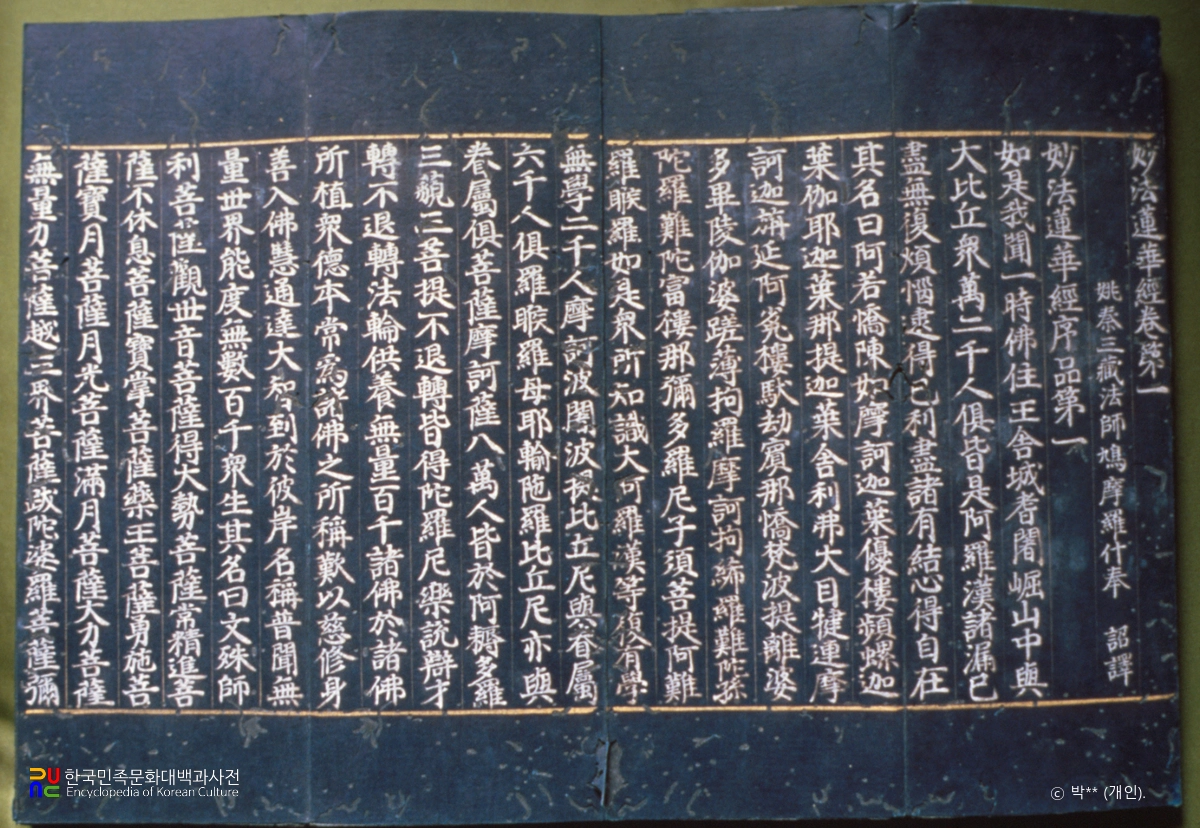 妙法蓮華經卷第一
姚秦三藏法師鳩摩羅什奉 詔譯
妙法蓮華經序品第一
如是我聞一時佛住王舍城耆闍崛山中與
大比丘衆萬二千人俱皆是阿羅漢諸漏已
盡無復煩惱逮得己利盡諸有結心得自在
其名曰阿若憍陳如摩訶迦葉優樓頻螺迦
葉伽耶迦葉那提迦葉舍利弗大目犍連摩
訶迦旃延阿㝹樓馱劫賓那憍梵波提離婆
多畢陵伽婆蹉薄拘羅摩訶拘絺羅難陀孫
陀羅難陀富樓那彌多羅尼子須菩提阿難
羅睺羅如是衆所知識大阿羅漢等復有學
無學二千人摩訶波闍波提比丘尼與眷屬
六千人俱羅睺羅母耶輸陁羅比丘尼亦與
眷屬俱菩薩摩訶薩八萬人皆於阿耨多羅
三藐三菩提不退轉皆得陀羅尼樂說辯才
轉不退轉法輪供養無量百千諸佛於諸佛
所植衆德本常爲諸佛之所稱歎以慈修身
善入佛慧通達大知到於彼岸名稱普聞無
量世界能度無數百千衆生其名曰文殊師
利菩薩觀世音菩薩得大勢菩薩常精進菩
薩不休息菩薩寶掌菩薩藥王菩薩勇施菩
薩寶月菩薩月光菩薩滿月菩薩大力菩薩
無量力菩薩越三界菩薩跋陀婆羅菩薩彌
한국민족문화대백과사전
Encyclopedia of Korean Culture
© 박** (개인).